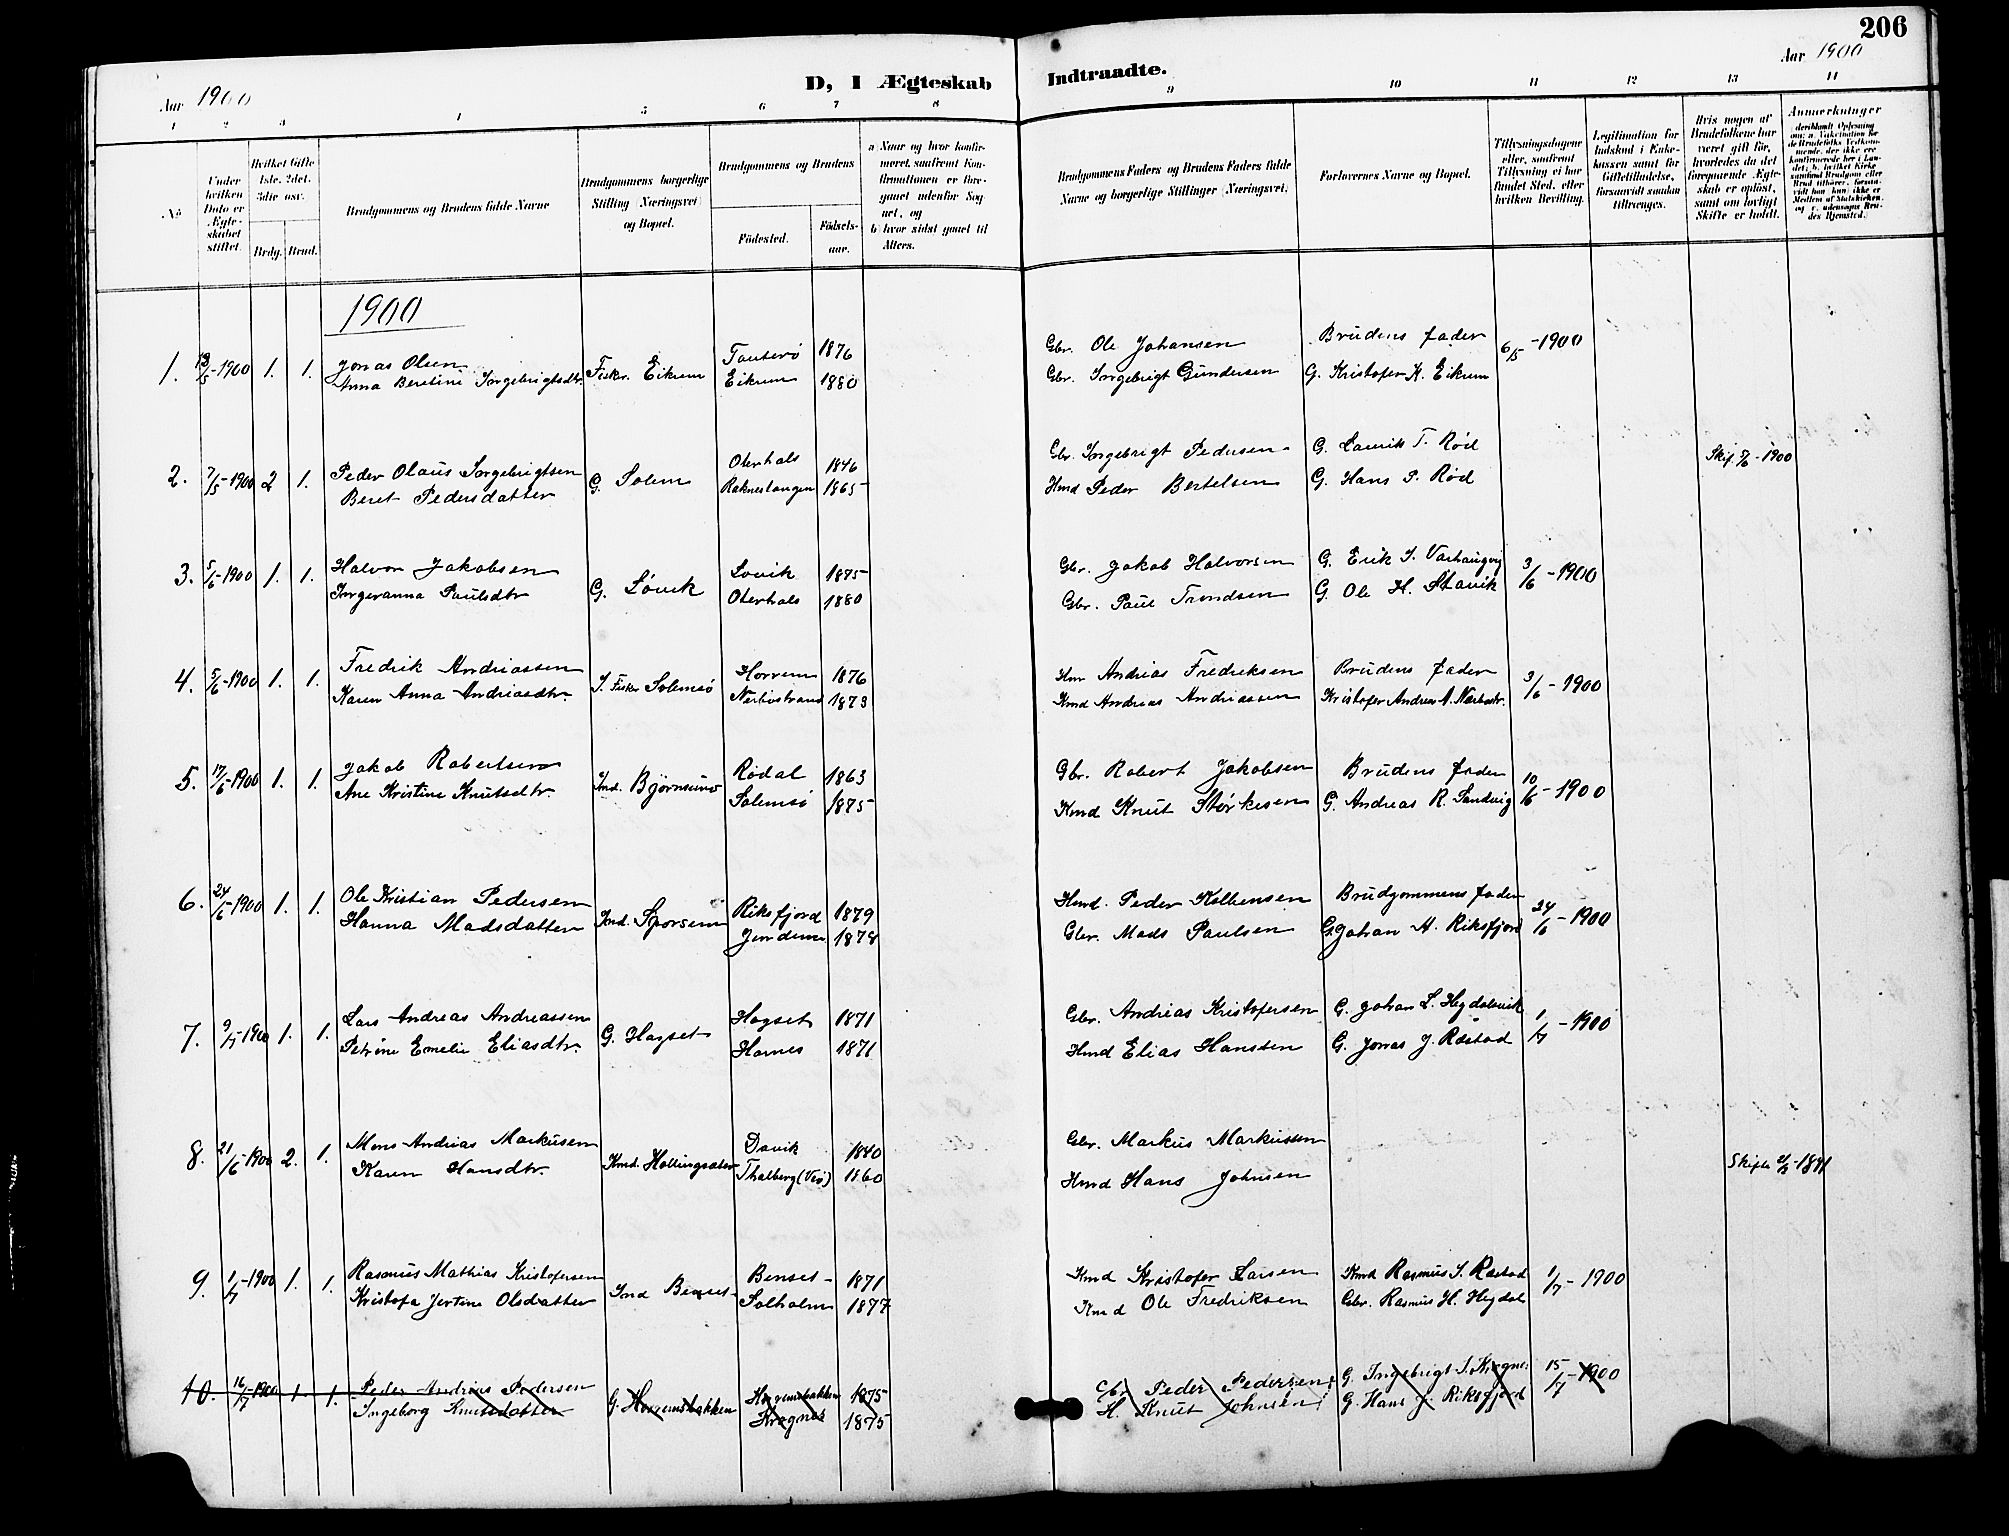 206
Aar 1900
D, I Ægteskab Indtraadte.
Aar 1900
1 2 3 4 5 6 7 8 9 10 11 12 13 14
No
Under hvilken Dato er Ægteskabet stiftet.
Hvilket Gifte 1ste, 2det, 3die osv.
Brdg. Brud.
Brudgommens og Brudens fulde Navne
Brudgommens borgerlige Stilling (Næringsvei) og Bopæl.
Brudgommens og Brudens
Fødested. Fødselsaar.
a) Naar og hvor konfirmeret, saafremt Konfirmationen er foregaaet udenfor Sognet, og
b) hvor sidst gaaet til Alters.
Brudgommens Faders og Brudens Faders fulde Navne og borgerlige Stillinger (Næringsvei).
Forlovernes Navne og Bopæl.
Tillysningsdagene eller, saafremt Tillysning ei har fundet Sted, efter hvilken Bevilling.
Legitimation for Indskud i Enkekassen samt for Giftetilladelse, forsaavidt saadan tiltrænges.
Hvis nogen af Brudefolkene har været gift før, hvorledes da det foregaaende Ægteskab er opløst, samt om lovligt Skifte er holdt.
Anmærkninger
1900
1. 13/5-1900 1. 1. Jonas Olsen Fisker Eikrem Tauterö 1876 Gbr. Ole Johansen Brudens fader 6/5-1900
Anna Beretine Ingebrigtsdtr. Eikrem 1880 Gbr. Ingebrigt Gundersen G. Kristofer K. Eikrem
2. 7/5-1900 2 1. Peder Olaus Ingebrigtsen G. Solem Oterhals 1846 Gbr. Ingebrigt Pedersen G. Laurits T. Rød Skif. -1900
Beret Pedersdatter Raknestangen 1865 Hmd Peder Bertelsen G. Hans P. Rød
3. 5/6-1900 1. 1. Halvor Jakobsen G. Løvik Lovik 1875 Gbr. Jakob Halvorsen G. Erik J. Varhaugvig 3/6-1900
Ingeranna Paulsdtr Oterhals 1880 Gbr. Paul Trondsen G. Ole H. Stavik
4. 5/6-1900 1. 1. Fredrik Andreassen Solemsö Horrem 1876 Andreas Fredriksen Brudens fader 3/6-1900
Karen Anna Andreasdtr. Nerböstrand 1873 Kmd Andreas Andreassen Kristofer Andreas A. Nærbøstr.
5. 17/6-1900 1. 1. Jakob Robertsen Ind. Björnsund Rødal 1863 Gbr. Robert Jakobsen Brudens fader 10/6-1900
Ane Kristine Knutsdtr. Solemsö 1875 Kmd Knut Størkesen G. Andreas R. Sandvig
6. 24/6-1900 1. 1. Ole Kristian Pedersen Ind. Sporsem Riksfjord 1879 Hmd. Peder Kolbensen Brudgommens fader 24/6-1900
Hanna Madsdatter Jendem 1878 Gbr. Mads Paulsen G. Johan A. Riksfjord
7. 9/7-1900 1. 1. Lars Andreas Andreassen G. Hagset Hagset 1871 Gbr. Andreas Kristofersen G. Johan L. Hegdalsvik 1/7-1900
Petrine Emelie Eliasdtr. Harnes 1871 Hmd Elias Hansten G. Jonas J. Røstad
8. 21/6-1900 2. 1. Mons Andreas Markusen Kmd. Hollingsæter Davik 1840 Gbr. Markus Markussen Skifte -1891
Karen Hansdtr. Thalberg (Veö) 1860 Hmd Hans Johnsen
9. 1/7-1900 1. 1. Rasmus Mathias Kristofersen Ind Benset Benset 1871 Kmd Kristofer Larsen Kmd Rasmus J. Røstad 1/7-1900
Kristofa Jertine Olsdatter Solholm 1877 Kmd Ole Fredriksen Gbr. Rasmus H. Hegdal
10. 16/7-1900 1. 1. Peder Andreas Pedersen G. Horremsbakken Horremsbakken 1875 Gbr Peder Pedersen G. Ingebrigt S. 15/7-1900
Ingeborg Knutsdatter 1875 H. Knut Johnsen G. Hans J. Riksfjord